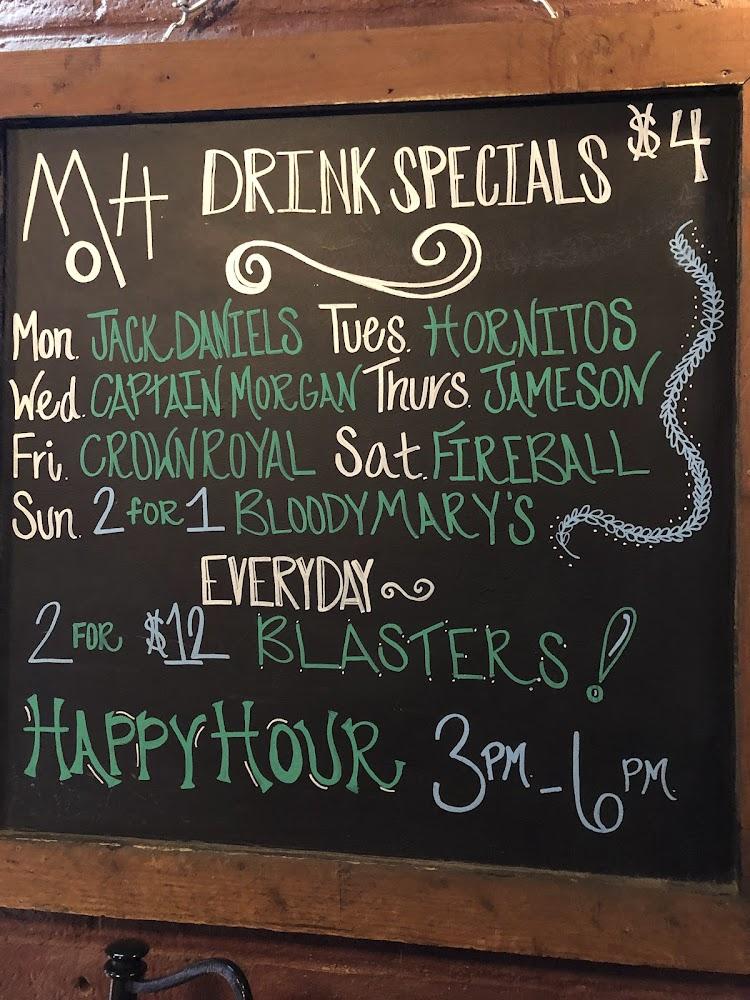 MoH DRINK SPECIALS $4
Mon. JACK DANIELS Tues. HORNITOS
Wed. CAPTAIN MORGAN Thurs. JAMESON
Fri. CROWN ROYAL Sat. FIREBALL
Sun. 2 FOR 1 BLOODY MARY'S
EVERYDAY
2 FOR $12 BLASTERS!
HAPPY HOUR 3PM. - 6PM.